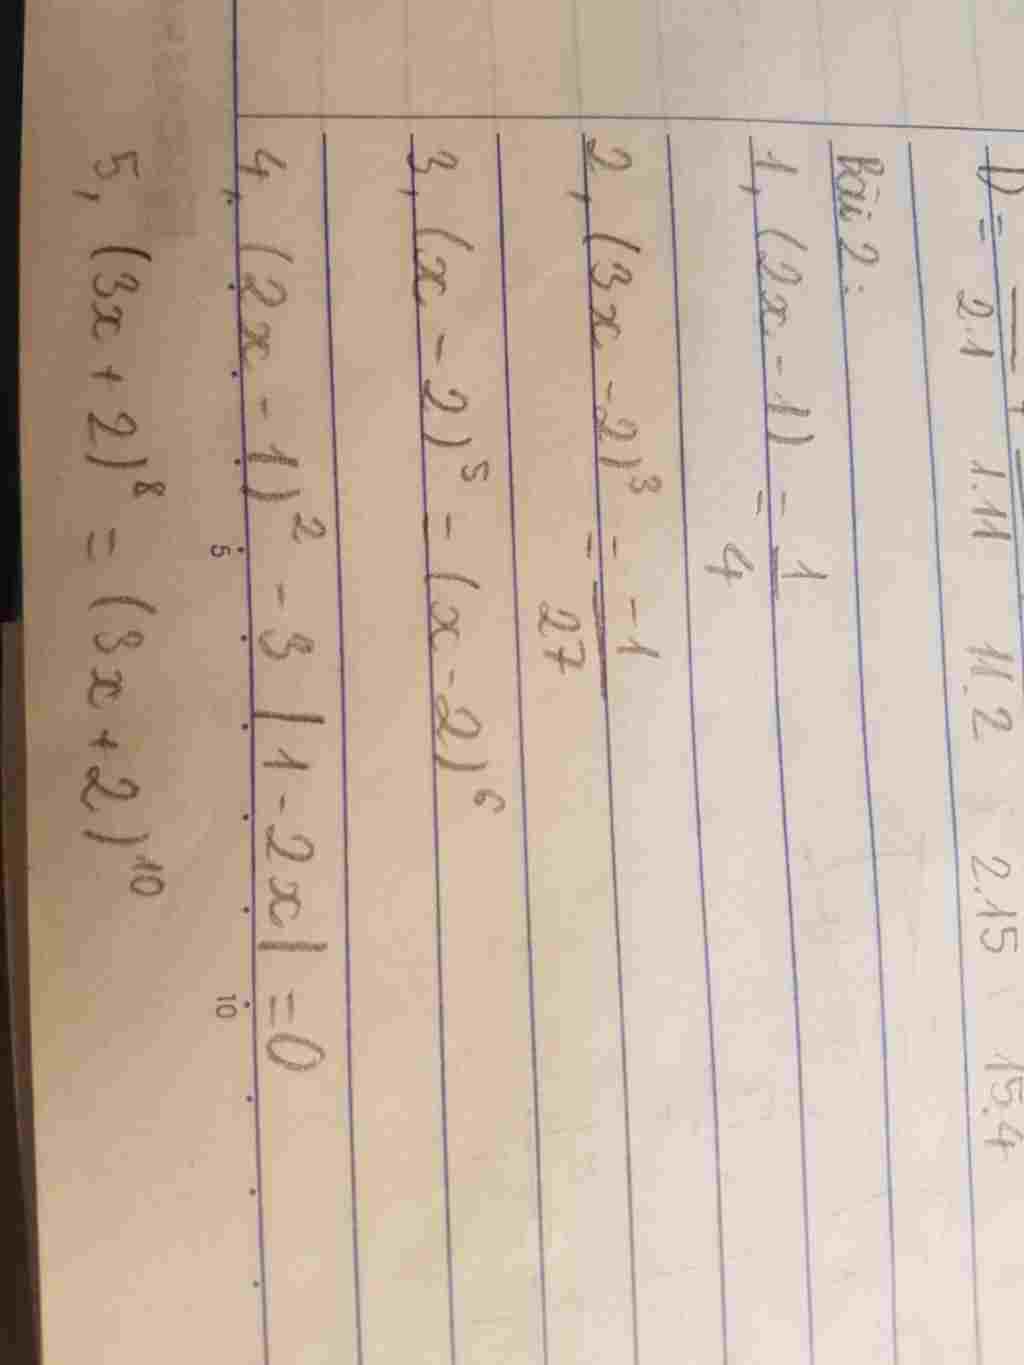 D = 2.1 1.11 11.2 2.15 15.4
Bài 2:
1, (2x - 1) = 1/4
2, (3x - 2)³ = -1/27
3, (x - 2)⁵ = (x - 2)⁶
4, (2x - 1)² - 3 |1 - 2x| = 0
5 10
5, (3x + 2)⁸ = (3x + 2)¹⁰